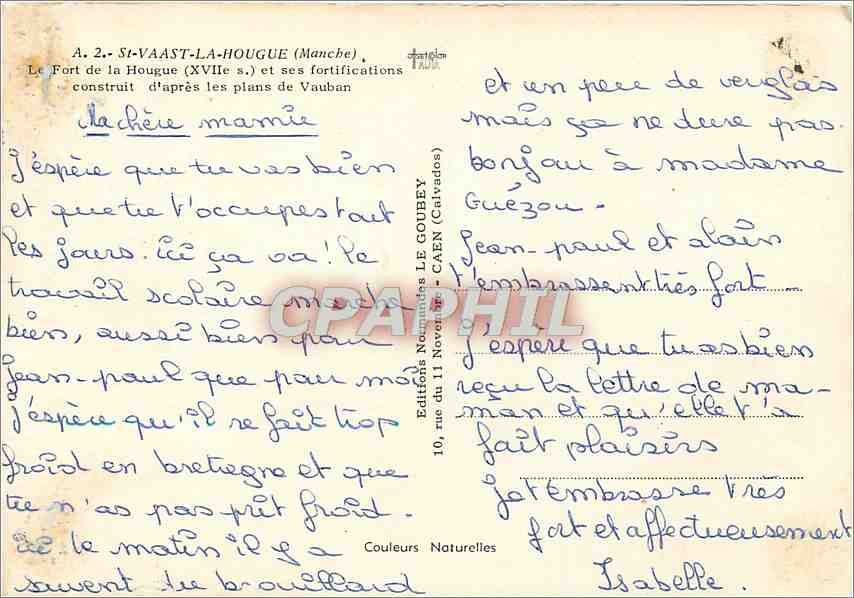 A. 2.- St-VAAST-LA-HOUGUE (Manche)
Le Fort de la Hougue (XVIIe s.) et ses fortifications
construit d'après les plans de Vauban
Ma chère mamie
J'espère que tu vas bien
et que tu t'occupes tout
les jours. ici ça va ! le
travail scolaire marche
bien, aussi bien pour
Jean-paul que pour moi
J'espère qu'il ne fait trop
froid en bretagne et que
tu n'as pas prit froid.
ici le matin il y a
souvent du brouillard
Couleurs Naturelles
Editions Normandes LE GOUBEY
10, rue du 11 Novembre - CAEN (Calvados)
et un peu de verglas
mais ça ne dure pas.
bonjou à madame
Guézou -
Jean-paul et alain
t'embrassent très fort -
J'espère que tu as bien
reçu la lettre de ma-
man et qu'elle t'a
fait plaisirs
Je t'embrasse très
fort et affectueusement
Isabelle.
CPAPHIL